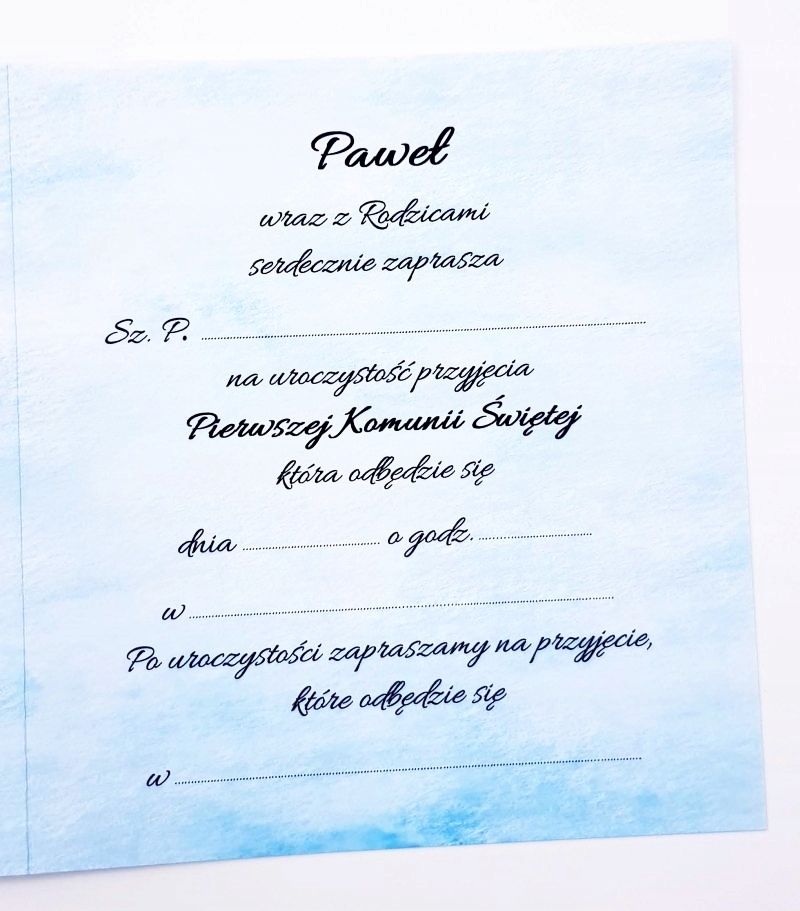 Paweł
wraz z Rodzicami
serdecznie zaprasza
Sz. P. ........................................
na uroczystość przyjęcia
Pierwszej Komunii Świętej
która odbędzie się
dnia .................... o godz. ....................
w ........................................
Po uroczystości zapraszamy na przyjęcie,
które odbędzie się
w ........................................